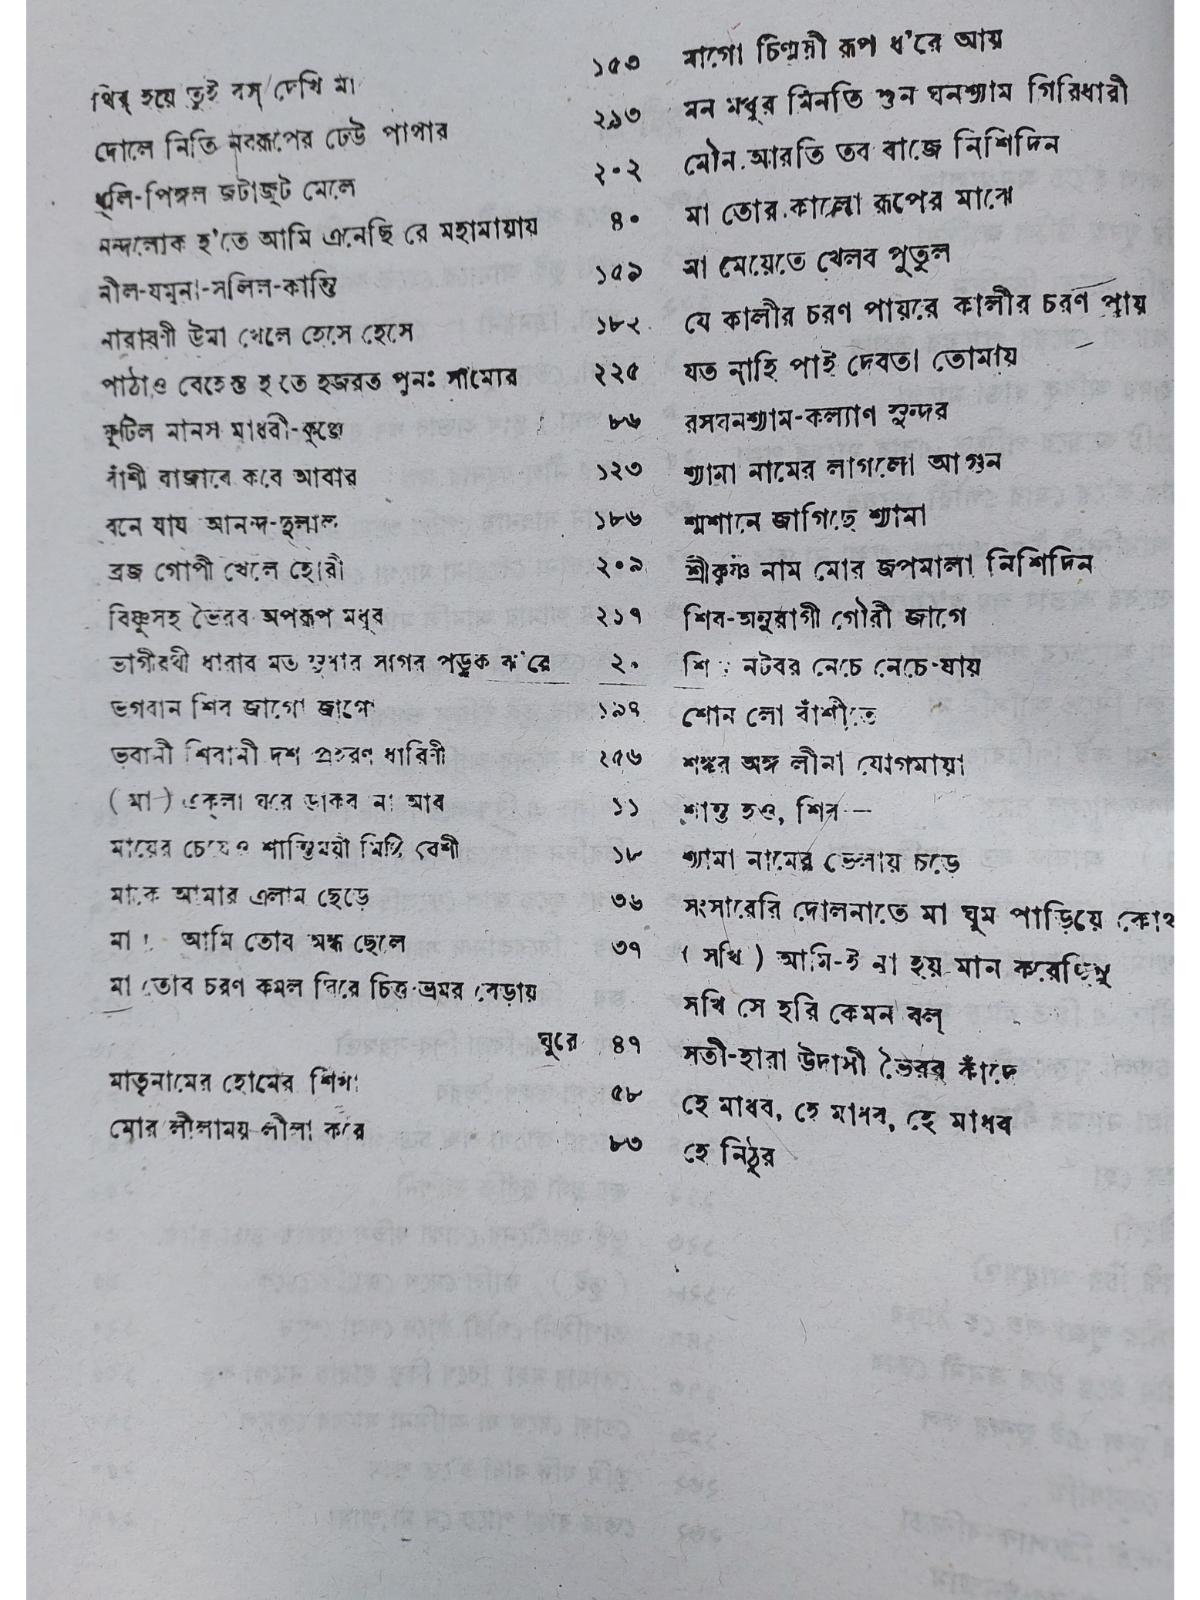 থির্ হয়ে তুই বস্ দেখি মা ১৫৩
দোলে নিতি নবরূপের ঢেউ পাথার ২৯৩
ধূলি-পিঙ্গল জটাজুট মেলে ২০২
নন্দলোক হ'তে আমি এনেছি রে মহামায়ায় ৪০
নীল-যমুনা-সলিল-কান্তি ১৫৯
নারায়ণী উমা খেলে হেসে হেসে ১৮২
পাঠাও বেহেস্ত হতে হজরত পুনঃ সাম্যের ২২৫
কুটিল মানস মাধবী-কুঞ্জে ৮৬
বাঁশী বাজাবে কবে আবার ১২৩
বনে যায় আনন্দ-দুলাল ১৮৬
ব্রজ গোপী খেলে হোরী ২০৯
বিষ্ণুসহ ভৈরব অপরূপ মধুর ২১৭
ভাগীরথী ধারার মত সুধার সাগর পড়ুক ঝ'রে ২০
ভগবান শিব জাগো জাগো ১৯৭
ভবানী শিবানী দশ প্রহরণ ধারিণী ২৫৬
( মা ) একলা ঘরে ডাকব না আর ১১
মায়ের চেয়েও শান্তিময়ী মিষ্টি বেশী ১৮
মাকে আমার এলাম ছেড়ে ৩৬
মা ! আমি তোর অন্ধ ছেলে ৩৭
মা তোর চরণ কমল ঘিরে চিত্ত-ভ্রমর বেড়ায়
ঘুরে ৪৭
মাতৃনামের হোমের শিখা ৫৮
মোর লীলাময় লীলা করে ৮৩
মাগো চিন্ময়ী রূপ ধ'রে আয়
মন মধুর মিনতি শুন ঘনশ্যাম গিরিধারী
মৌন আরতি তব বাজে নিশিদিন
মা তোর কালো রূপের মাঝে
মা মেয়েতে খেলব পুতুল
যে কালীর চরণ পায়রে কালীর চরণ পায়
যত নাহি পাই দেবতা তোমায়
রসঘনশ্যাম-কল্যাণ সুন্দর
শ্যামা নামের লাগলো আগুন
শ্মশানে জাগিছে শ্যামা
শ্রীকৃষ্ণ নাম মোর জপমালা নিশিদিন
শিব-অনুরাগী গৌরী জাগে
শিব নটবর নেচে নেচে যায়
শোন লো বাঁশীতে
শঙ্কর অঙ্গ লীনা যোগমায়া
শান্ত হও, শিব—
শ্যামা নামের ভেলায় চড়ে
সংসারেরি দোলনাতে মা ঘুম পাড়িয়ে
( সখি ) আমি-ই না হয় মান করেছিনু
সখি সে হরি কেমন বল্
সতী-হারা উদাসী ভৈরব কাঁদে
হে মাধব, হে মাধব, হে মাধব
হে নিঠুর